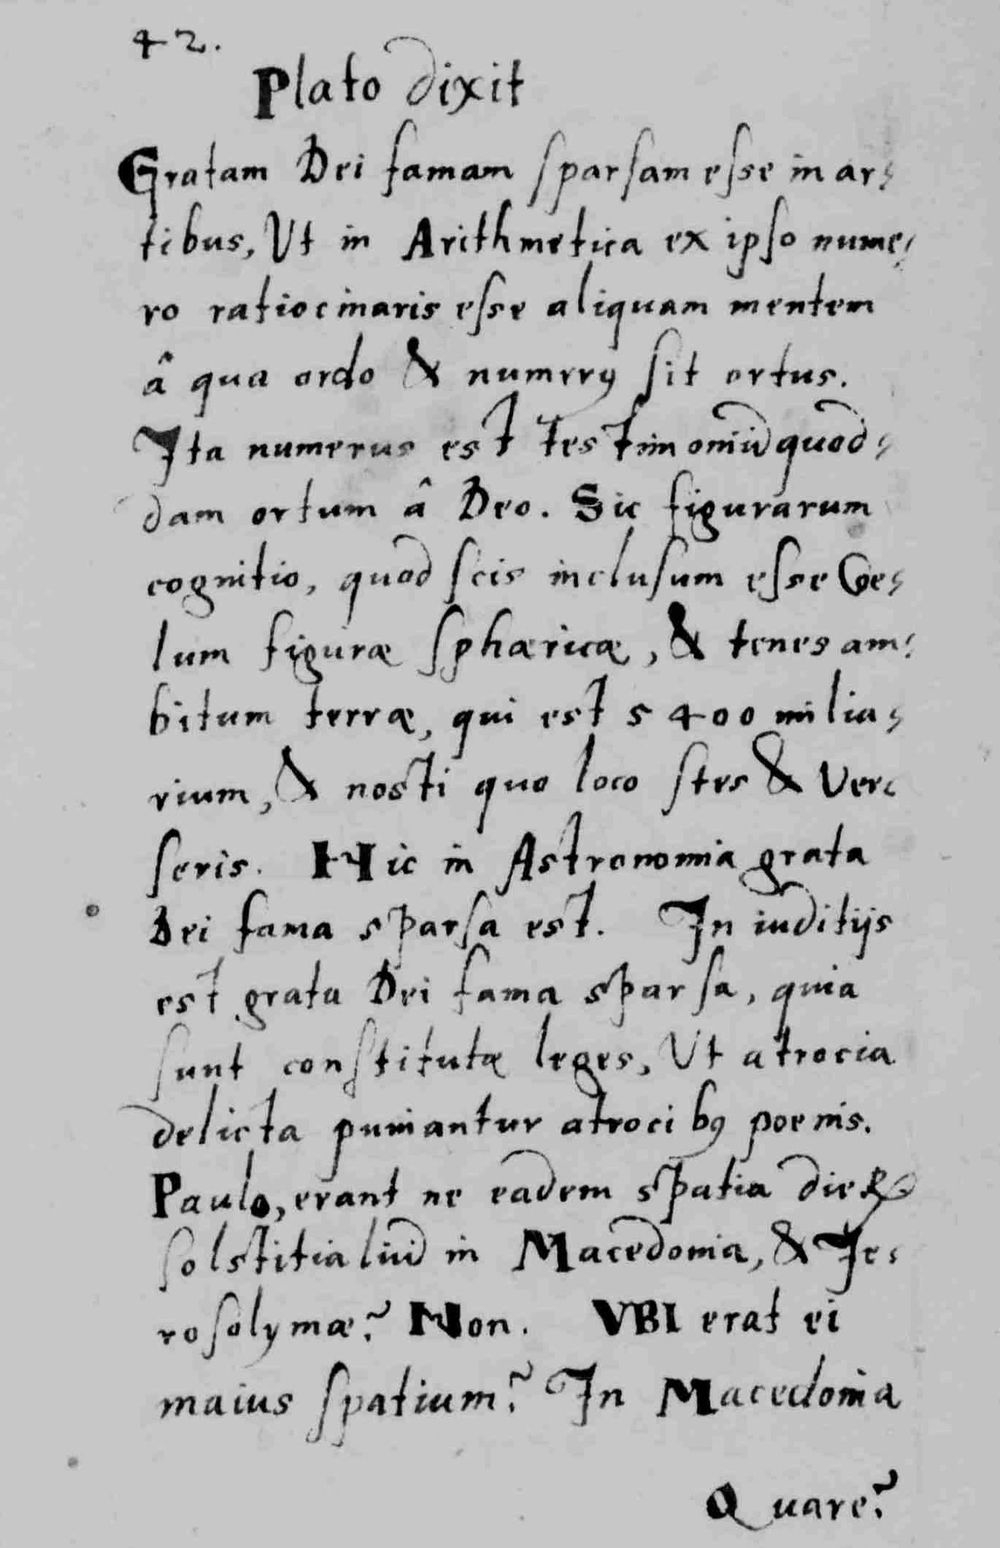 42.
Plato dixit
Gratam Dei famam sparsam esse in ar⸗
tibus, Ut in Arithmetica ex ipso nume⸗
ro ratiocinaris esse aliquam mentem
â qua ordo & numerꝰ sit ortus.
Ita numerus est testimoniũ quod⸗
dam ortum â Deo. Sic figurarum
cognitio, quod scis inclusum esse Coe⸗
lum figuræ sphæricæ, & tenes am⸗
bitum terræ, qui est 5400 milia⸗
rium, & nosti quo loco stes & Ver⸗
seris. Hic in Astronomia grata
Dei fama sparsa est. In iuditijs
est grata Dei fama sparsa, quia
sunt constitutæ leges, Ut atrocia
delicta puniantur atrocibꝰ poenis.
Paulo, erant ne eadem spatia dieꝝ
solstitialiũ in Macedonia, & Je⸗
rosolymæ? Non. VBI erat ei
maius spatium? In Macedonia
Quare?